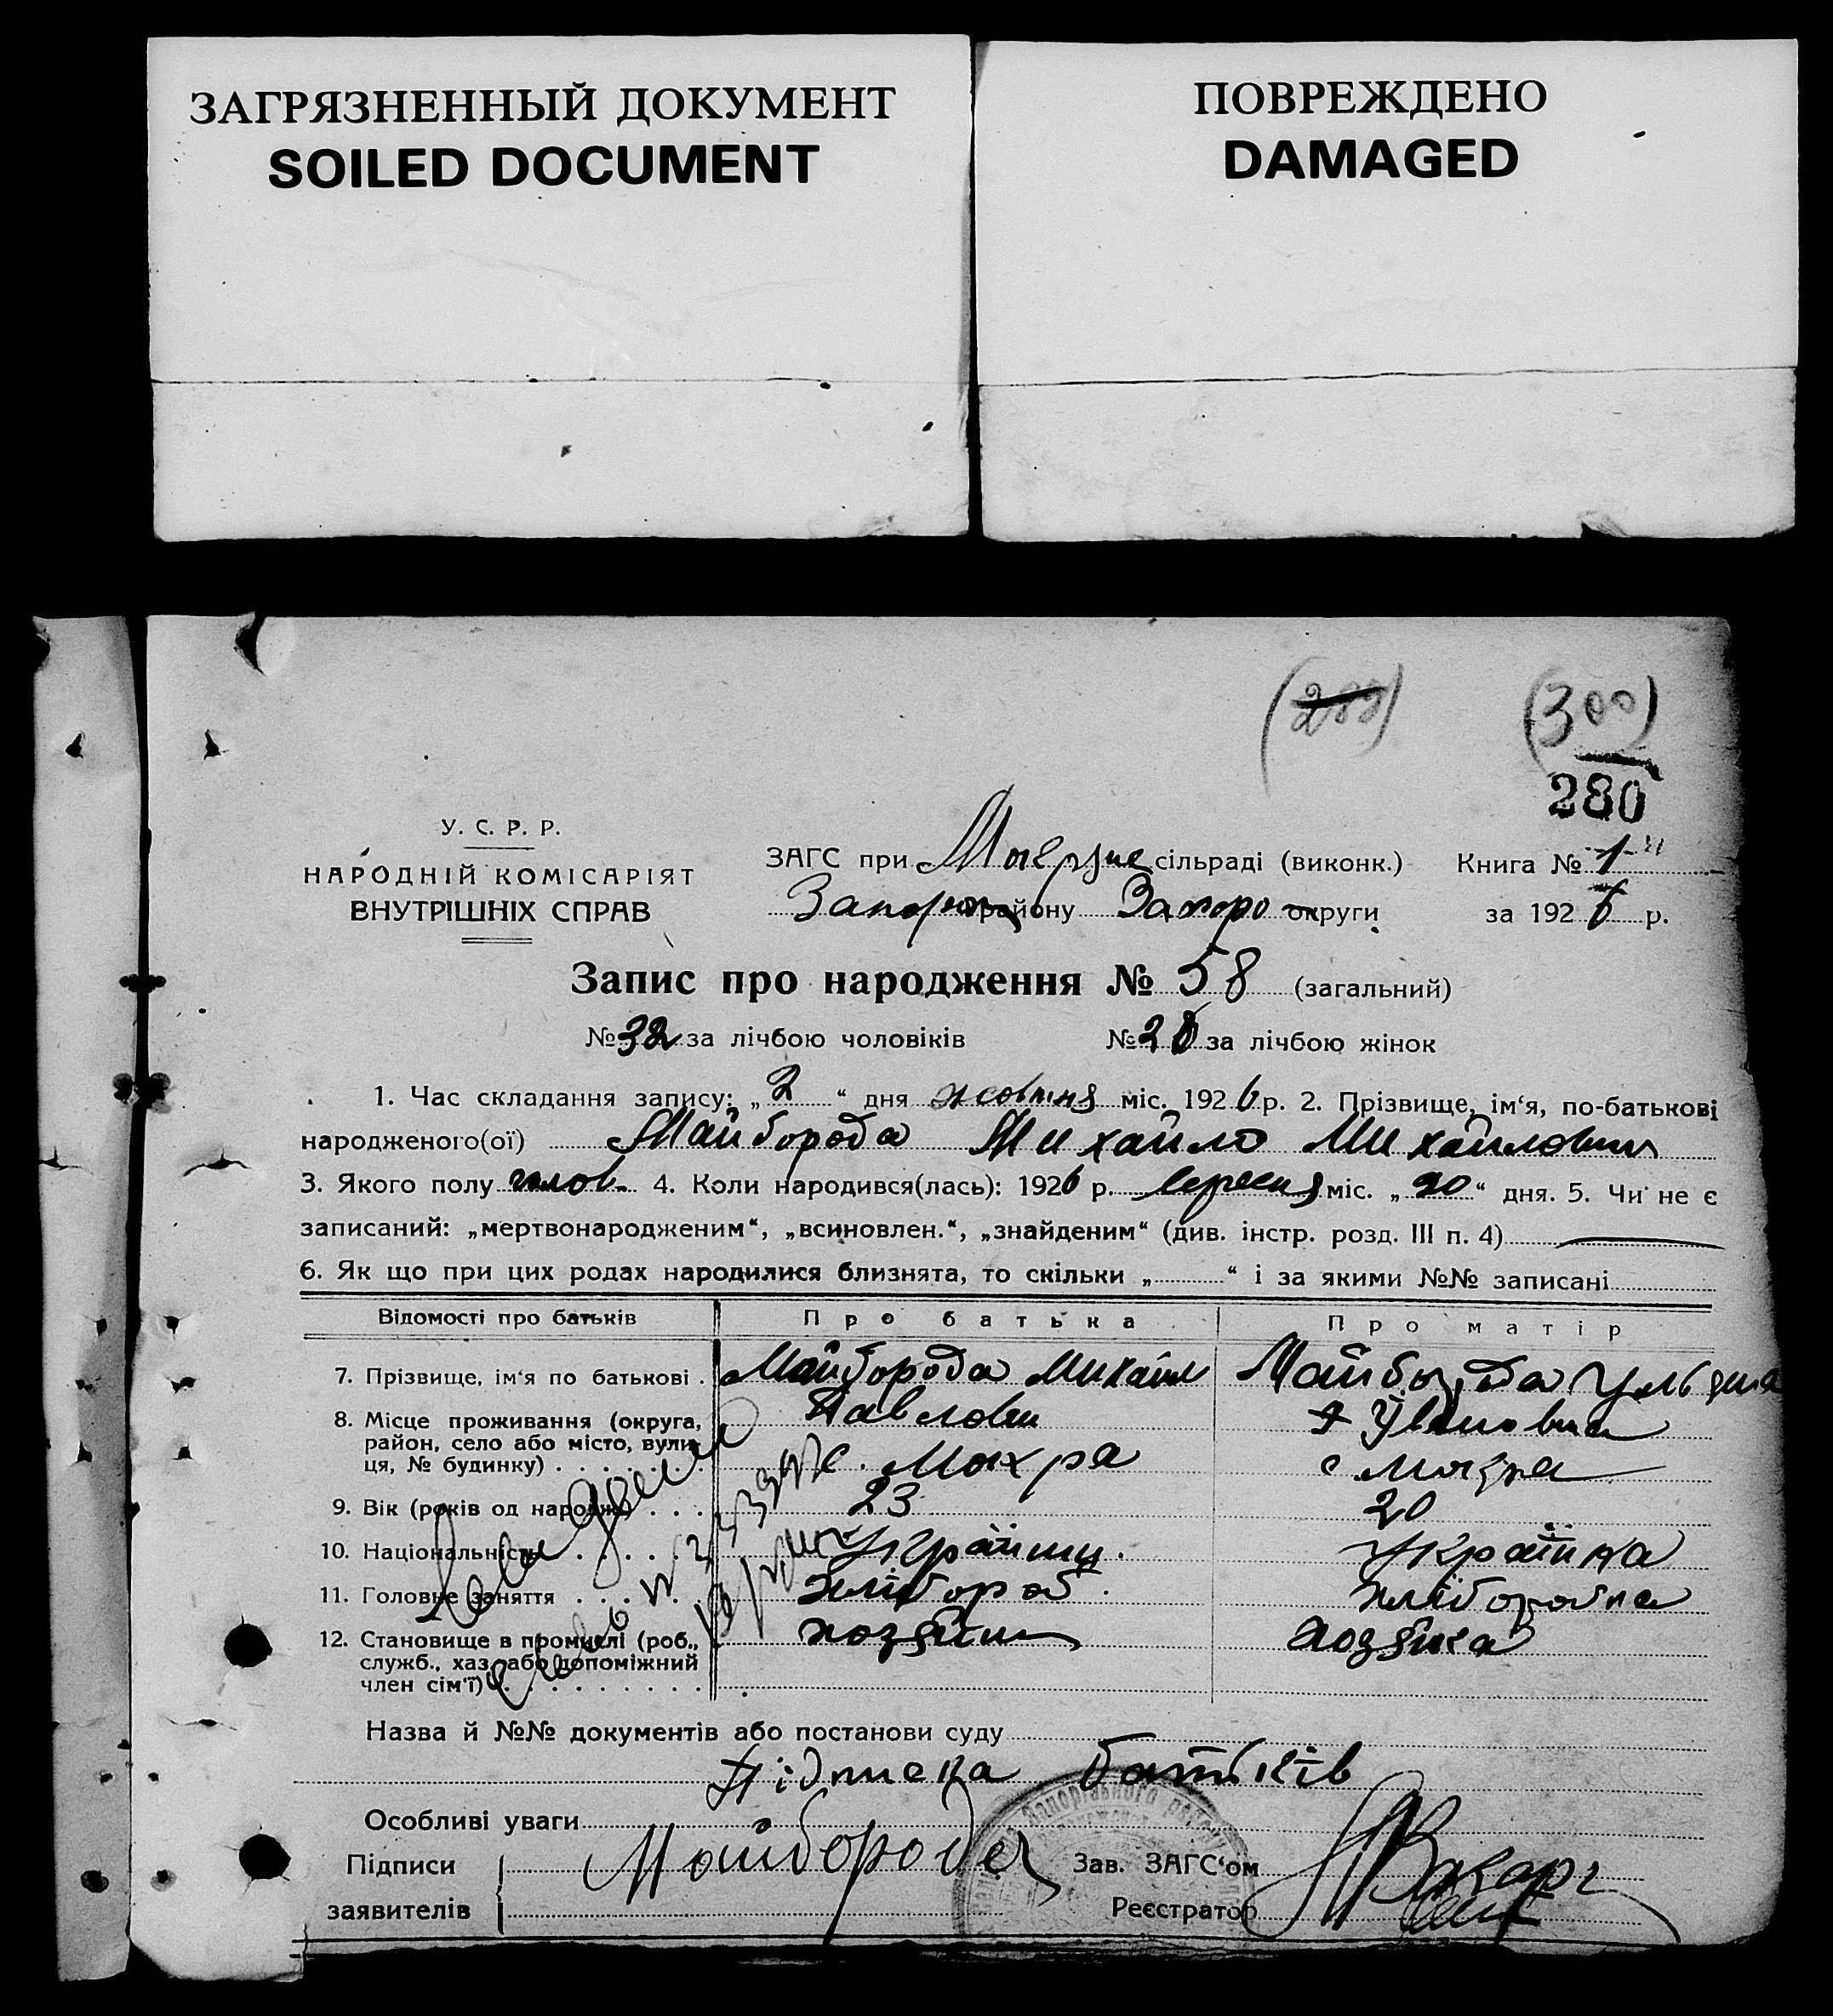 ЗАГРЯЗНЕННЫЙ ДОКУМЕНТ
SOILED DOCUMENT
ПОВРЕЖДЕНО
DAMAGED
(300)
280
У. С. Р. Р.
НАРОДНІЙ КОМІСАРІЯТ
ВНУТРІШНІХ СПРАВ
ЗАГС при сільраді (виконк.) Книга № 1
району округи за 1926 р.
Запис про народження № 58 (загальний)
№ 32 за лічбою чоловіків № за лічбою жінок
1. Час складання запису: „2“ дня жовтня міс. 1926 р. 2. Прізвище, ім‘я, по-батькові
народженого(ої) Майборода Михайло Михайлович
3. Якого полу чолов. 4. Коли народився(лась): 1926 р. вересня міс. „20“ дня. 5. Чи не є
записаний: „мертвонародженим“, „всиновлен.“, „знайденим“ (див. інстр. розд. III п. 4)
6. Як що при цих родах народилися близнята, то скільки „ “ і за якими №№ записані
Відомості про батьків Про батька Про матір
7. Прізвище, ім‘я по батькові . Майборода Михайло Майборода
Павлович
8. Місце проживання (округа, район, село або місто, вулиця, № будинку) с. Мокра с Мокра
9. Вік (років од народж.) . . . 23 20
10. Національність . . . . . Українец. Українка
11. Головне заняття . . . . хлібороб. хліборобка
12. Становище в промислі (роб., служб., хаз. або допоміжний член сім‘ї) хозяїн хозяйка
Назва й №№ документів або постанови суду
Підписка батьків
Особливі уваги
Підписи заявителів Майборода
Зав. ЗАГС‘ом
Реєстратор